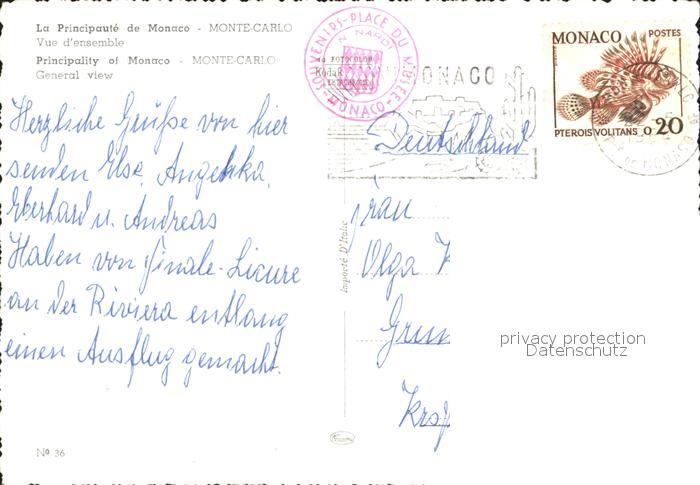 La Principauté de Monaco - MONTE-CARLO
Vue d'ensemble
Principality of Monaco - MONTE-CARLO
General view
SOUVENIRS-PLACE DU
MONACO
MONACO
MONACO POSTES
PTEROIS VOLITANS 0 20
DE MONACO
Deutschland
Herzliche Grüße von hier
senden Else, Angelika,
Eberhard u. Andreas
Haben von Finale-Ligure
an der Riviera entlang
einen Ausflug gemacht.
Importé D'Italie
Frau
Olga
privacy protection
Datenschutz
Nº 36